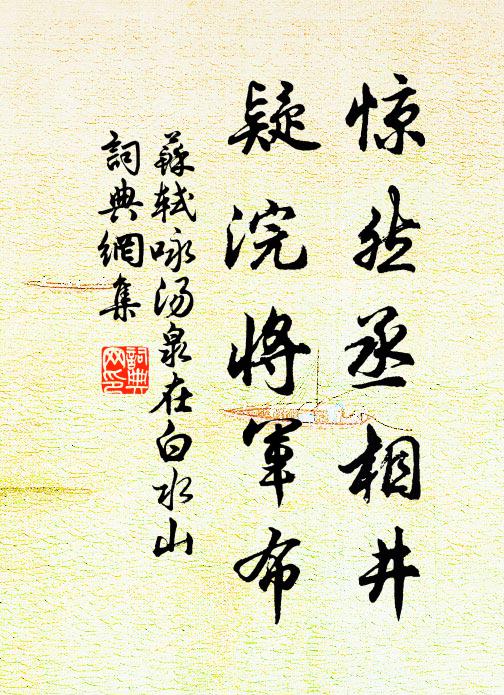 惊然丞相井
疑浣將軍布
蘇軾咏汤泉在白水山
詞典網集
詞典网印